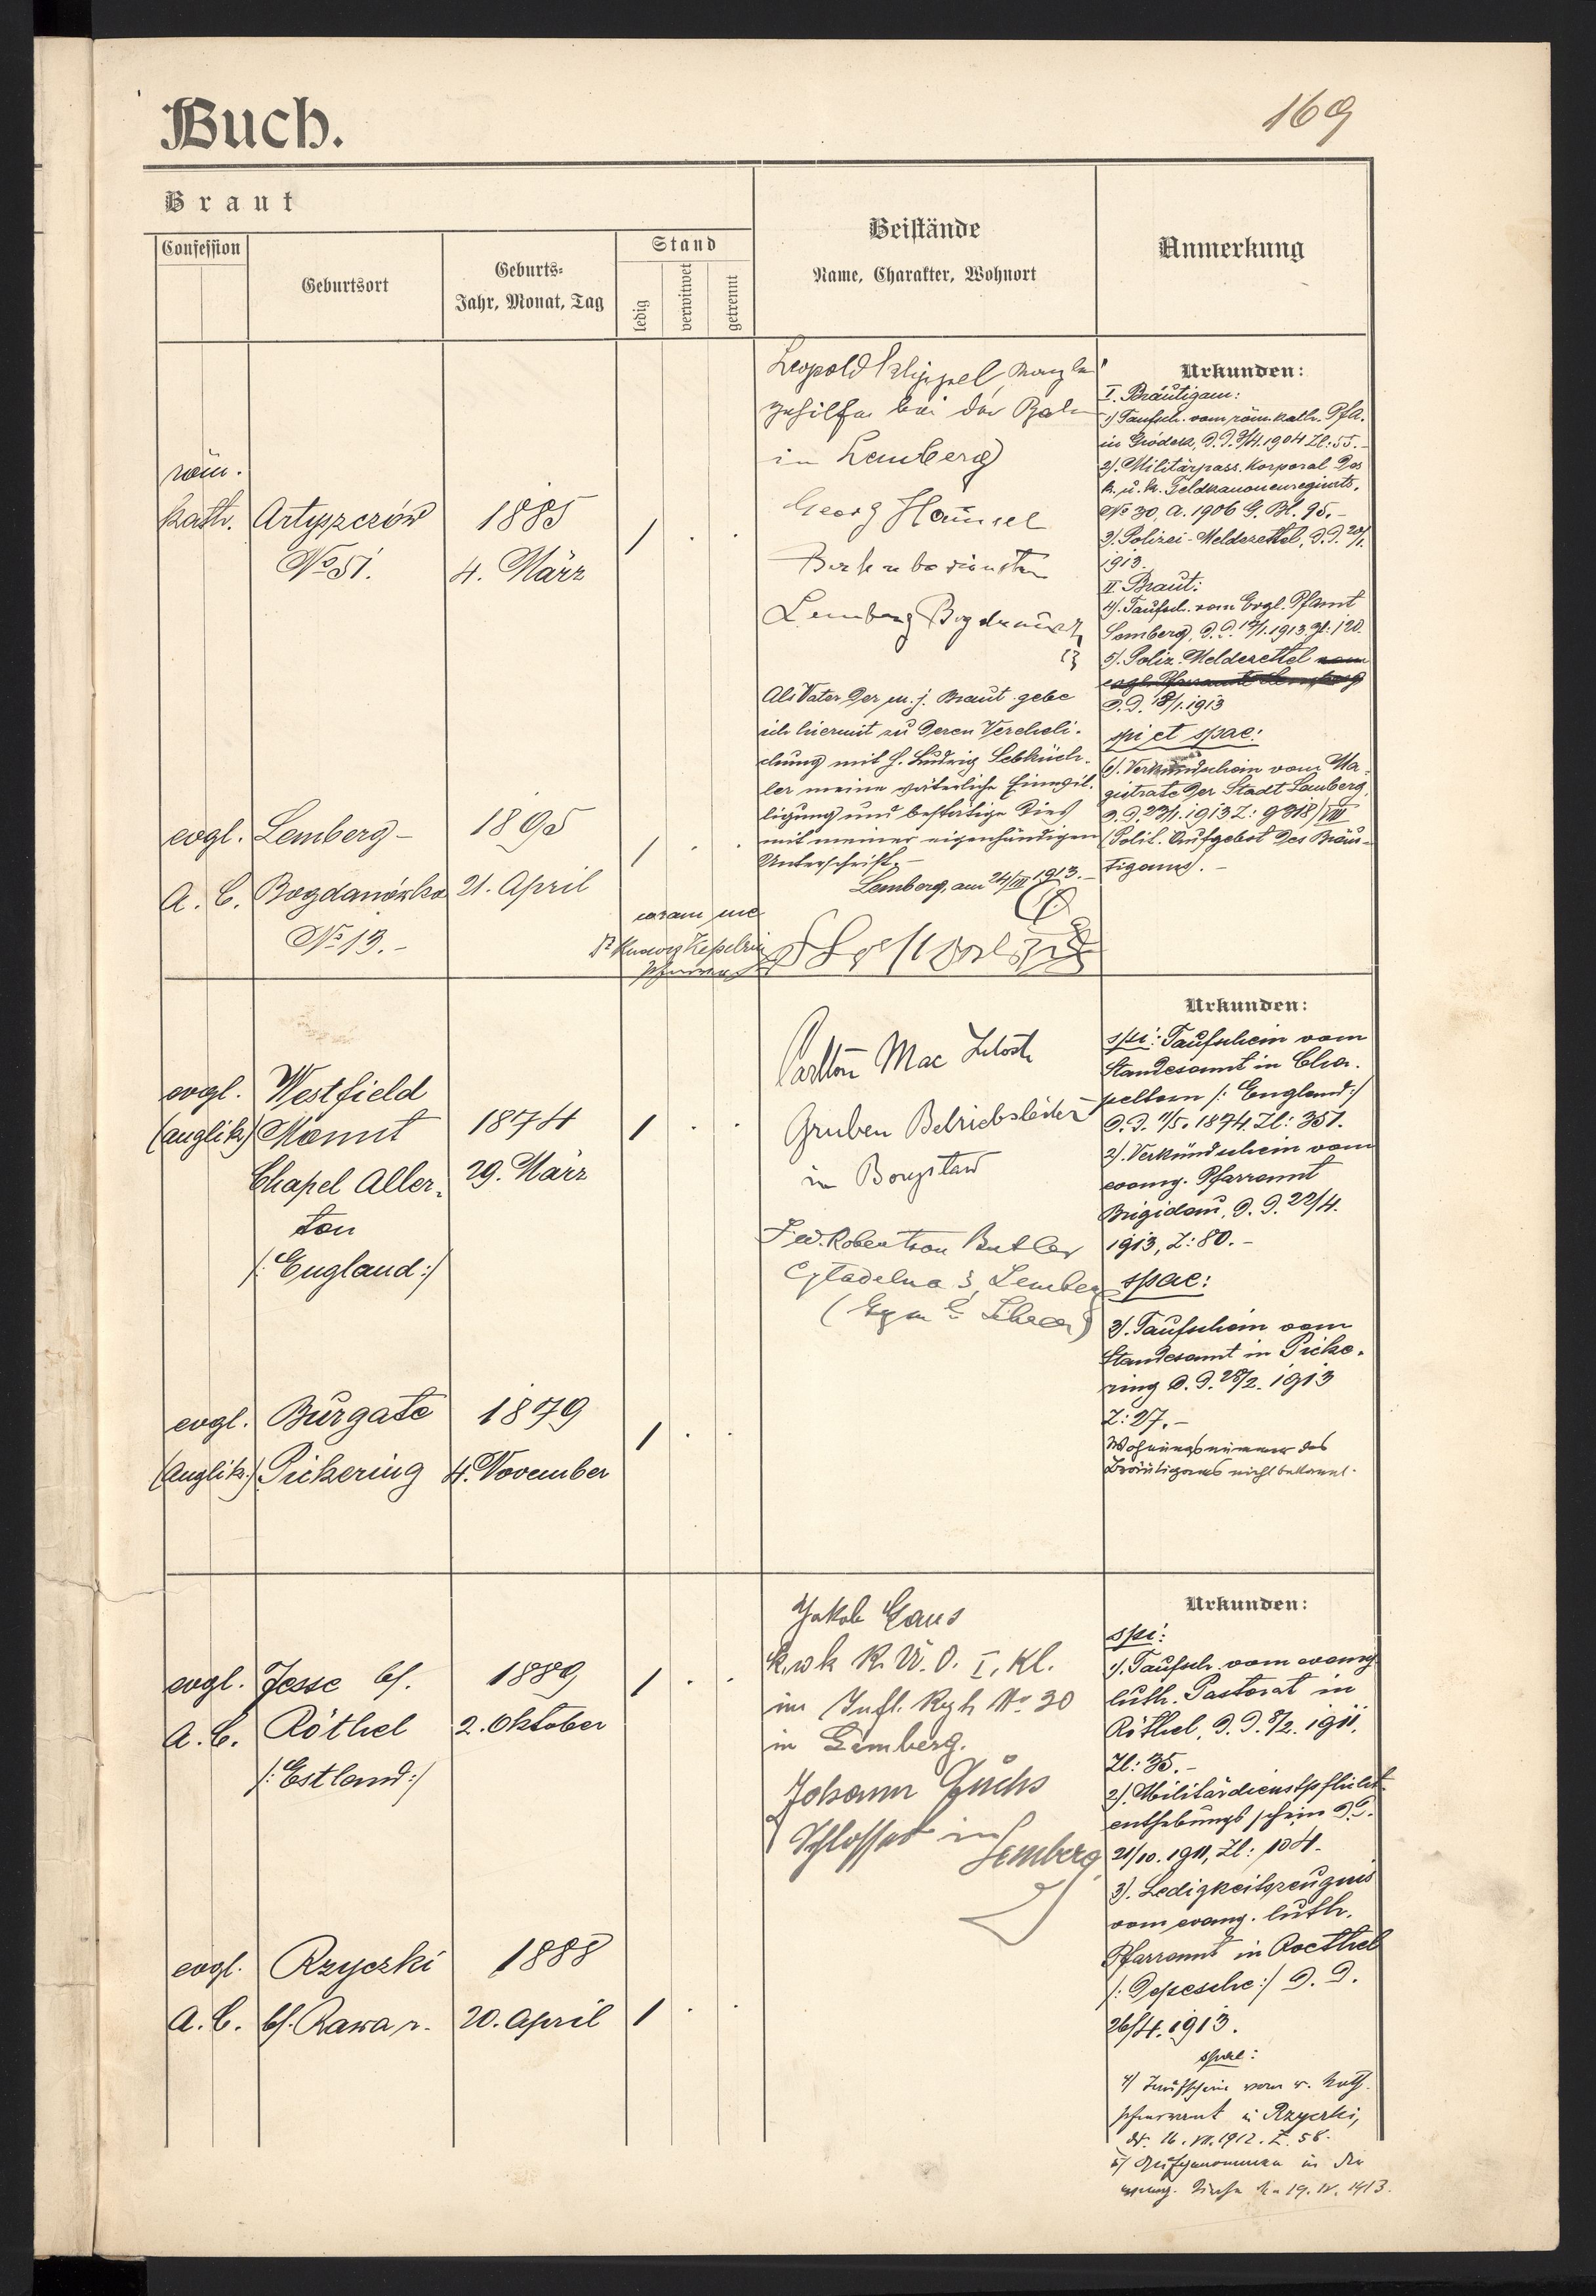 Buch.
169
Braut
Confession
Geburtsort
Geburts-
Jahr, Monat, Tag
Stand
ledig
verwitwet
getrennt
Beistände
Name, Charakter, Wohnort
Anmerkung
röm.
kath.
Artyszczów
No 51.
1885
4. März
1
evgl.
A. C.
Lemberg –
Bogdanówka
No 13. –
1895
21. April
1
coram me
Leopold
gehilfe bei der Bahn
in Lemberg
Georg
Lemberg Bogdanówka
13
Als Vater der m. j. Braut gebe
ich hiermit zu deren Vereheli-
chung mit H. Ludwig Lebküch-
ler meine väterliche Einwil-
ligung und bestätige dies
mit meiner eigenhändigen
Unterschrift. –
Lemberg, am 24/III 1913. –
Urkunden:
I. Bräutigam:
1). Taufsch. vom röm. kath. Pfa.
in Gródek, d. d. 1904 Zl: 55. –
2). Militärpass. Korporal des
k. u. k. Feldkanonenregimts.
No 30, A. 1906 G. Bl. 95. –
3). Polizei-Meldezettel, d. d.
1913.
II Braut:
4). Taufsch. vom Evgl. Pfamt
Lemberg, d. d. 1913 Zl: 120.
5). Poliz. Meldezettel
d. d. 18/1. 1913
spi et spae:
6). Verkündschein vom Ma-
gistrate der Stadt Lemberg,
d. d. 23/1. 1913 Z: 9318/VIII
(Polit. Aufgebot des Bräu-
tigams). –
evgl.
(anglik.)
Westfield
Mount
Chapel Aller-
ton
/: England :/
1874
29. März
1
evgl.
(Anglik.)
Burgate
Pickering
1879
4. November
1
Carlton Mac
Gruben Betriebsleiter
in Borysław
Fed. Robertson Butler
Cytadelna 3, Lemberg
Urkunden:
spi: Taufschein vom
Standesamt in Cha-
peltown /: England :/
d. d. 1/5. 1874. Zl: 351.
2). Verkündschein vom
evang. Pfarramt
Brigidau, d. d. 22/4.
1913, Z: 80. –
spae:
3). Taufschein vom
Standesamt in Picke-
ring d. d. 28/2. 1913
Z: 27. –
Wohnungsnummer des
Bräutigams nicht bekannt.
evgl.
A. C.
Jesse b/.
Röthel
/: Estland :/
1889
2. Oktober
1
evgl.
A. C.
Rzyczki
b/. Rawa r.
1888
20. April
1
Jakob Gans
R. U. O. I. Kl.
im Inft. Rgt. No 30
in Lemberg.
Johann Fuchs
Schlosser in
Lemberg
Urkunden:
spi:
1). Taufsch. vom evang
luth. Pastorat in
Röthel, d. d. 8/2. 1911,
Zl: 35. –
2). Militärdienstpflicht-
enthebungsschein d. d.
21/10. 1911, Zl: 104.
3). Ledigkeitszeugnis
vom evang. luth.
Pfarramt in Roethel
/: Depesche :/ d. d.
26/4. 1913.
spae:
4) Taufschein vom r. kath.
Pfarramt in Rzyczki,
16. VII. 1912. Z. 58.
5) Aufgenommen in die
evang. Kirche den 19. IV. 1913.